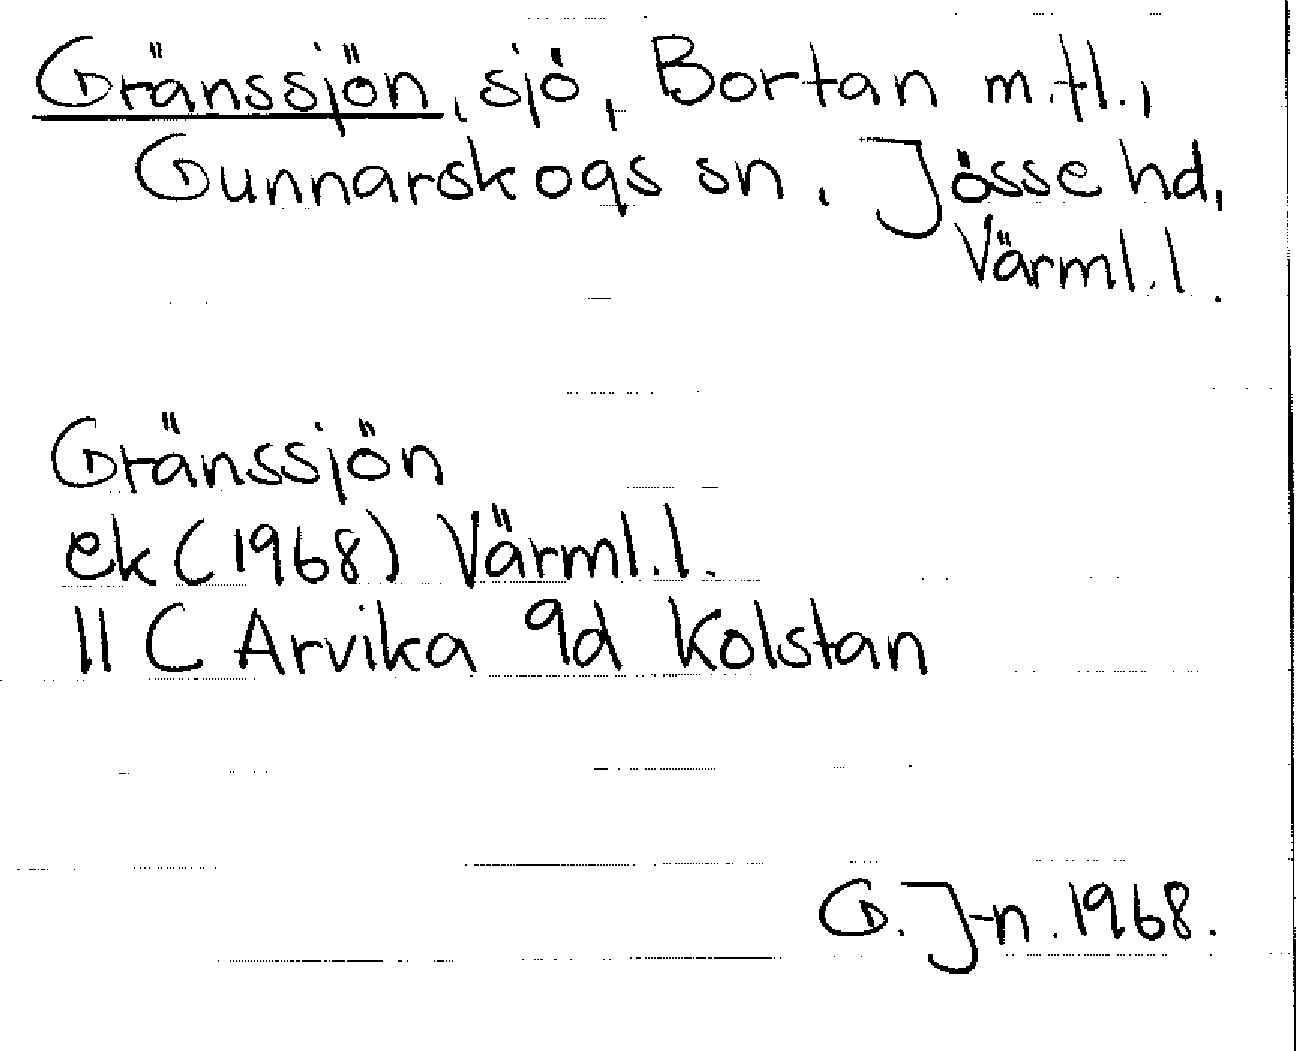 Gränssjön, sjö, Bortan m.fl.,
Gunnarskogs sn, Jösse hd,
Värml.l.
Gränssjön
ek (1968) Värml.l.
11 C Arvika 9d Kolstan
G. J-n. 1968.